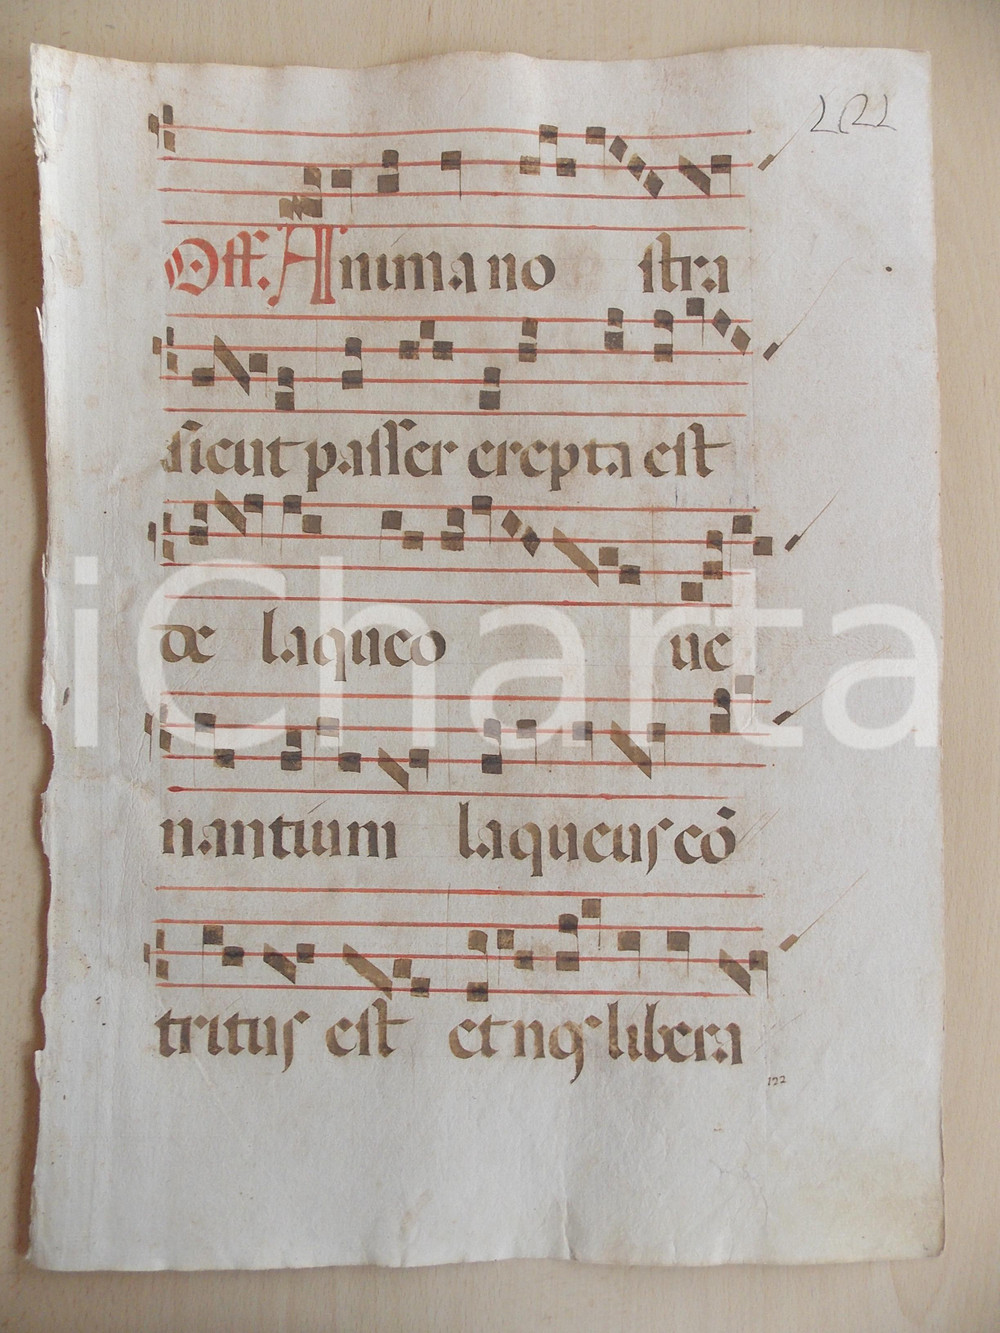 Off. Anima no stra
sicut passer erepta est
de laqueo ue
nantium laqueus cō
tritus est et nos libera
122
iCharta